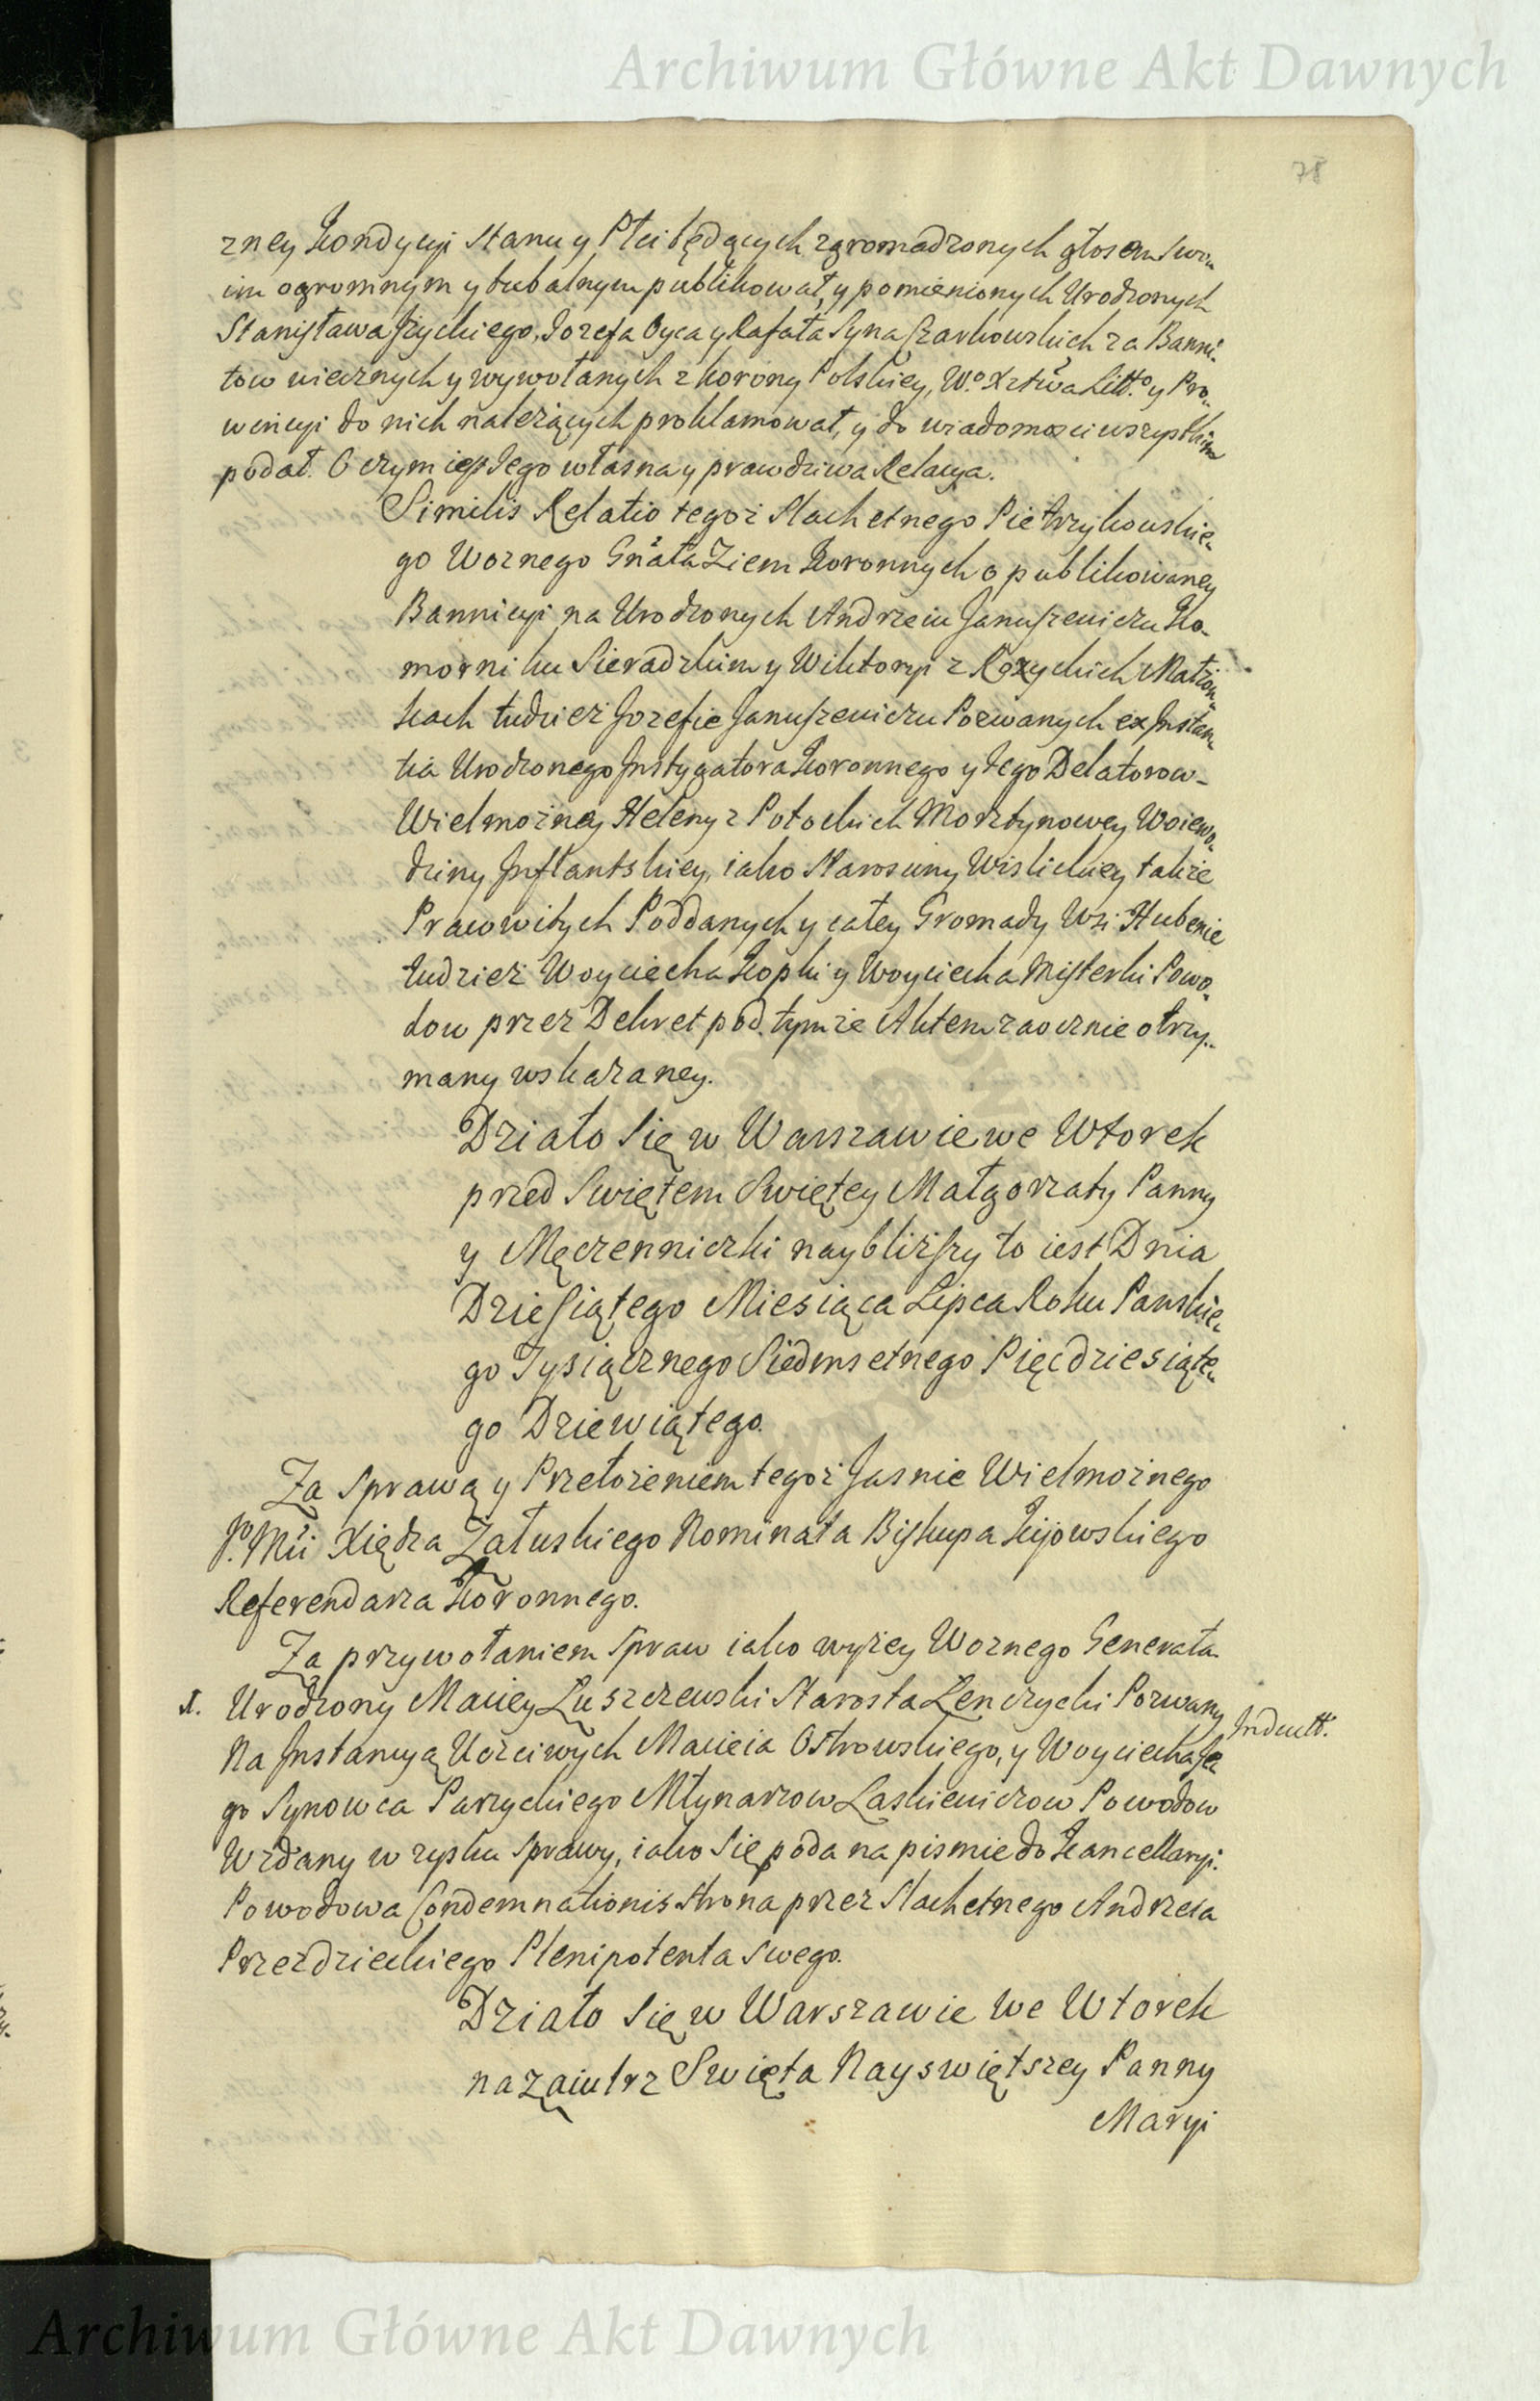 Archiwum Główne Akt Dawnych
78
zney Kondycyi Stanu y Płci będących zgromadzonych głosem Swo„
im ogromnym y tubalnym publikował, y pomienionych Urodzonych
Stanisława Jzyckiego, Jozefa Oyca y Rafała Syna Czarkowskich za Banni„
tow wiecznych y wywołanych z Korony Polskiey, W.o Xztwa Litt.o y Pro„
wincyi do nich należących proklamował, y do wiadomosci wszystkim
podał. O czym iest Jego własna y prawdziwa Relacya.
Similis Relatio tegoż Slachetnego Pietrzykowskie„
go Woznego Gnała Ziem Koronnych o publikowaney
Bannicyi na Urodzonych Andrzeiu Januszewiczu Ko-
morniku Sieradzkim y Wiktoryi z Małżon„
kach tudzież Jozefie Januszewiczu Pozwanych ex Instan„
tia Urodzonego Instygatora Koronnego y Jego Delatorow-
Wielmożney Heleny z Potockich Morsztynowey Woiewo„
dziny Inflantskiey, iako Starosciny Wislickiey także
Prawowitych Poddanych y całey Gromady Wsi Hubenie
tudzież Woyciecha Kopki y Woyciecha Misterki Powo„
dow przez Dekret pod tymże Aktem zaocznie otrzy„
many wskazaney.
Działo Się w Warszawie we Wtorek
przed Swiętem Swiętey Małgorzaty Panny
y Męczenniczki naybliższy to iest Dnia
Dziesiątego Miesiąca Lipca Roku Panskie„
go Tysiącznego Siedmsetnego Pięcdziesiąte„
go Dziewiątego.
Za Sprawą y Przełożeniem tegoż Jasnie Wielmożnego
Jo. Mci Xiędza Załuskiego Nominata Biskupa Kijowskiego
Referendarza Koronnego.
Za przywołaniem Spraw iako wyżey Woznego Generała
1. Urodzony Maciey Luszczewski Starosta Lenczycki Pozwany
Indult.
Na Instancyą Uczciwych Macieia Ostrowskiego, y Woyciecha Je„
go Synowca Parzyckiego Młynarzow Laskiewiczow Powodow
Wzdany w zysku Sprawy, iako Się poda na pismie do Kancellaryi.
Powodowa Condemnationis Strona przez Slachetnego Andrzeia
Przezdzieckiego Plenipotenta Swego.
Działo Się w Warszawie We Wtorek
nazaiutrz Swięta Nayswiętszey Panny
Maryi
Archiwum Główne Akt Dawnych